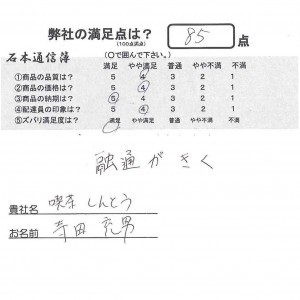 弊社の満足点は？
(100点満点)
85 点
石本通信簿
(○で囲んで下さい。)
満足 やや満足 普通 やや不満 不満
①商品の品質は？ 5 4 3 2 1
②商品の価格は？ 5 4 3 2 1
③商品の納期は？ 5 4 3 2 1
④配達員の印象は？ 5 4 3 2 1
⑤ズバリ満足度は？ 満足 やや満足 普通 やや不満 不満
融通がきく
貴社名 喫茶しんとう
お名前 寺田 充男